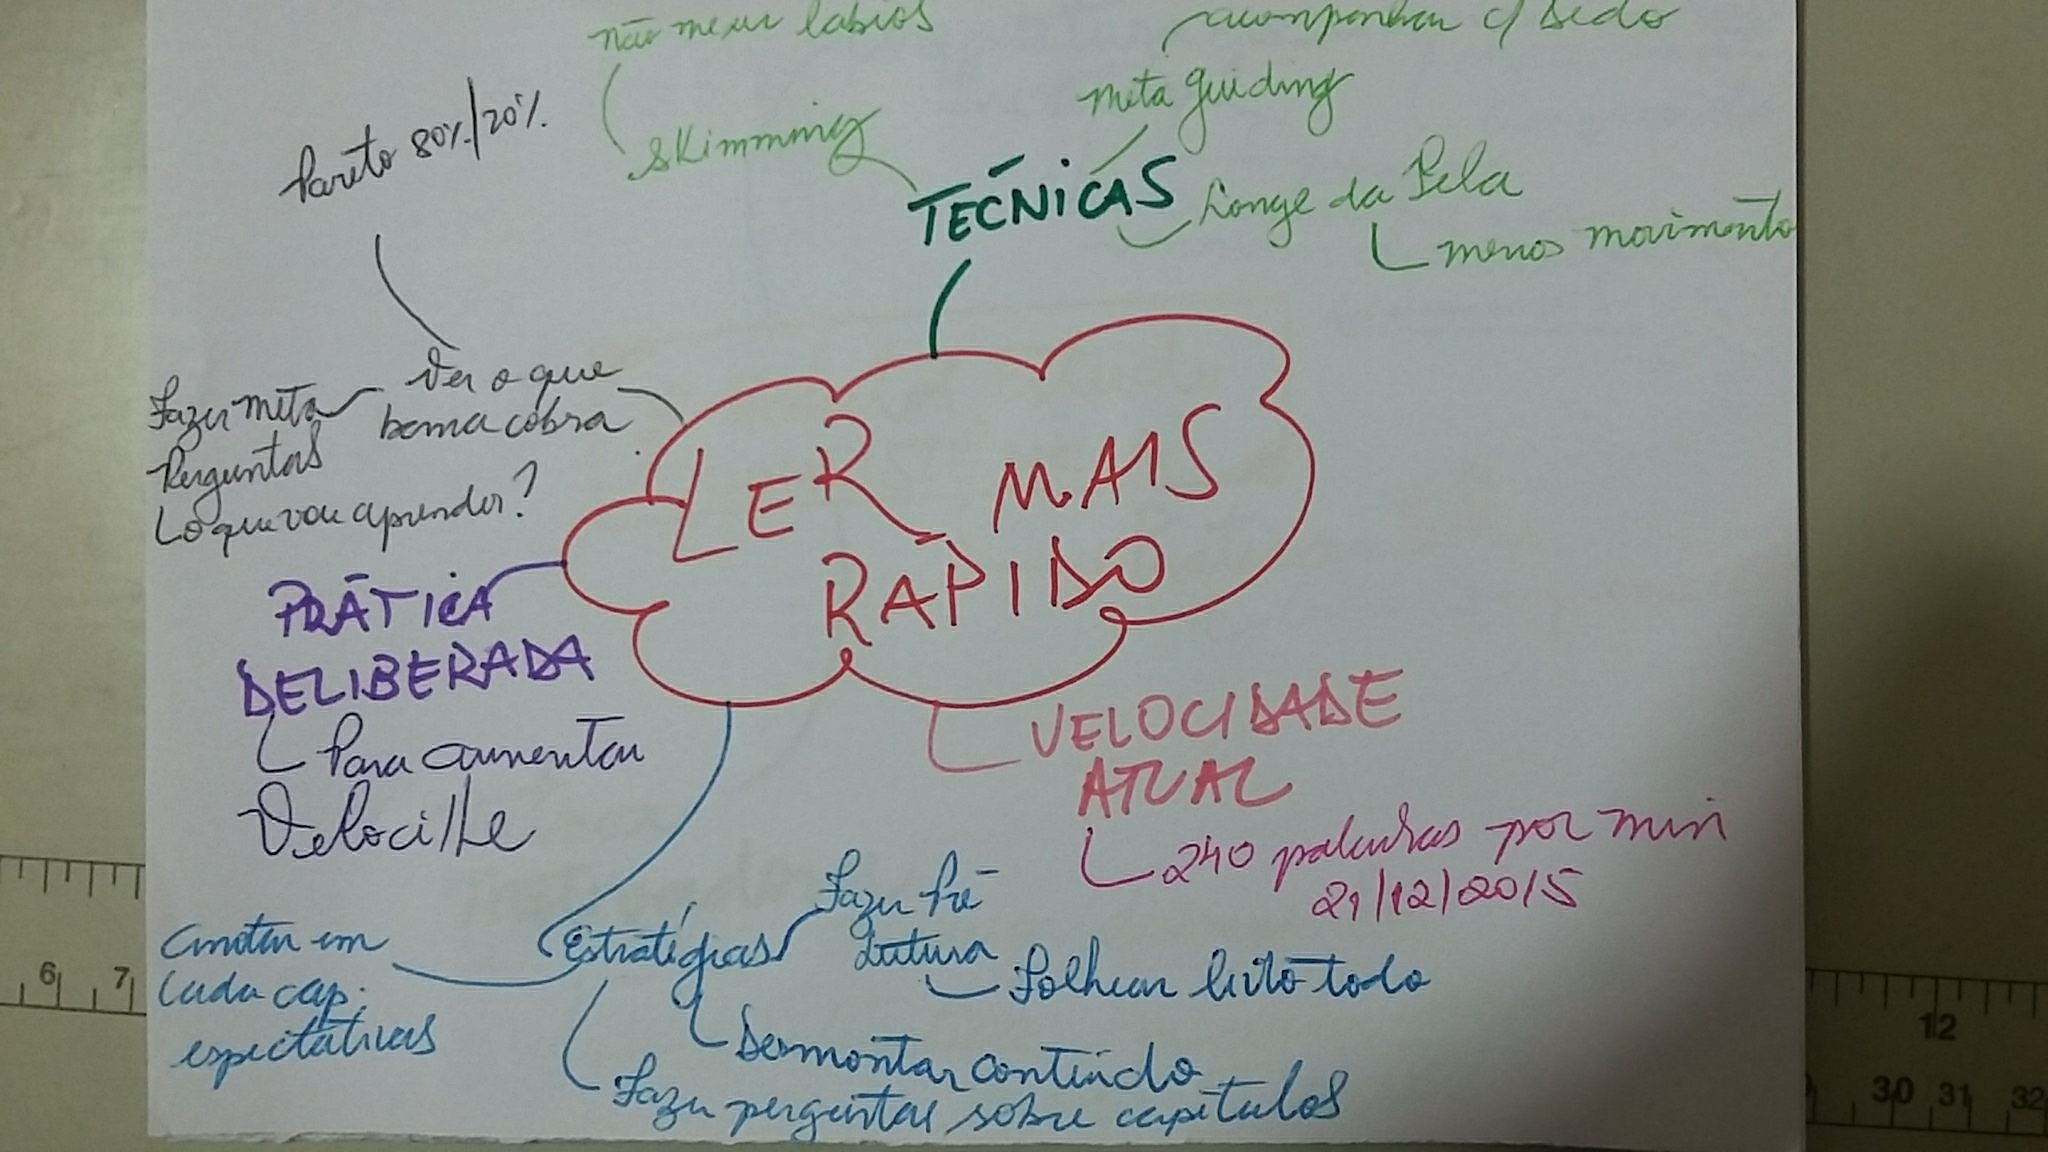 não mexer lábios
acompanhar c/ dedo
Meta guiding
Pareto 80%/20%
Skimming
TÉCNICAS
Longe da Pela
menos movimento
Ver o que
banca cobra
Fazer meta
Perguntas
Lo que vou aprender?
LER MAIS
RÁPIDO
PRÁTICA
DELIBERADA
Para aumentar
Veloci//de
VELOCIDADE
ATUAL
240 palavras por min
21/12/2015
Estratégias
Fazer Pré
Leitura
Folhear livro todo
anotar em
Cada cap.
espectativas
Desmontar conteúdo
Fazer perguntas sobre capítulos
6 7
12
30 31 32